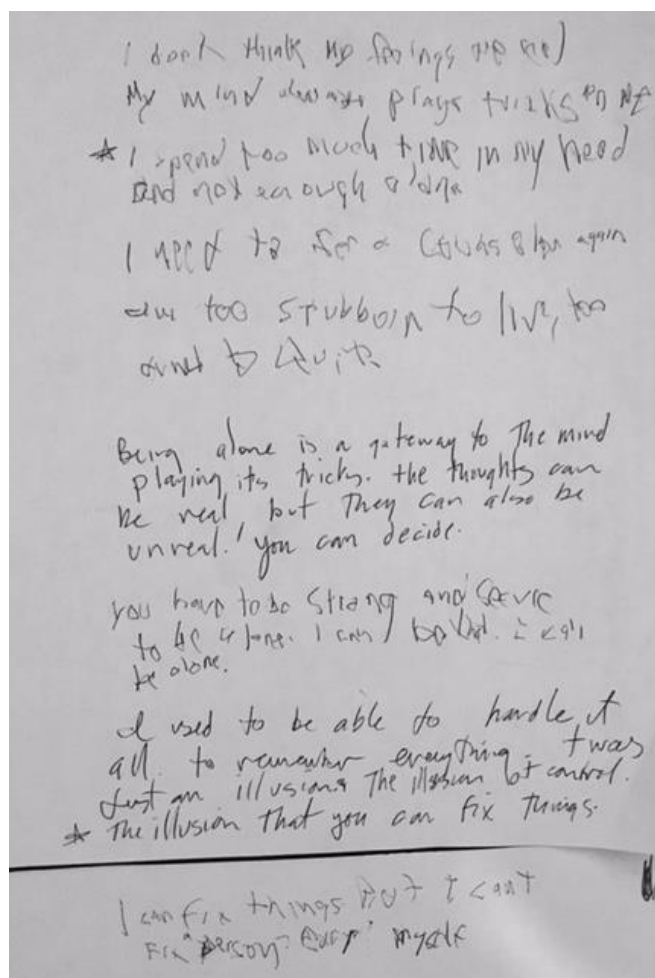 I don't think my feelings are real
My mind always plays tricks on me
* I spend too much time in my head
and not enough alone
I need to see a again
too stubborn to live, too
to quit.
Being alone is a gateway to the mind
playing its tricks. the thoughts can
be real but they can also be
unreal. you can decide.
you have to be strong and
to be alone. I can be
be alone.
I used to be able to handle it
all, to remember everything. It was
Just an illusion. The illusion of control.
* The illusion that you can fix things.
I can fix things But I can't
Fix myself